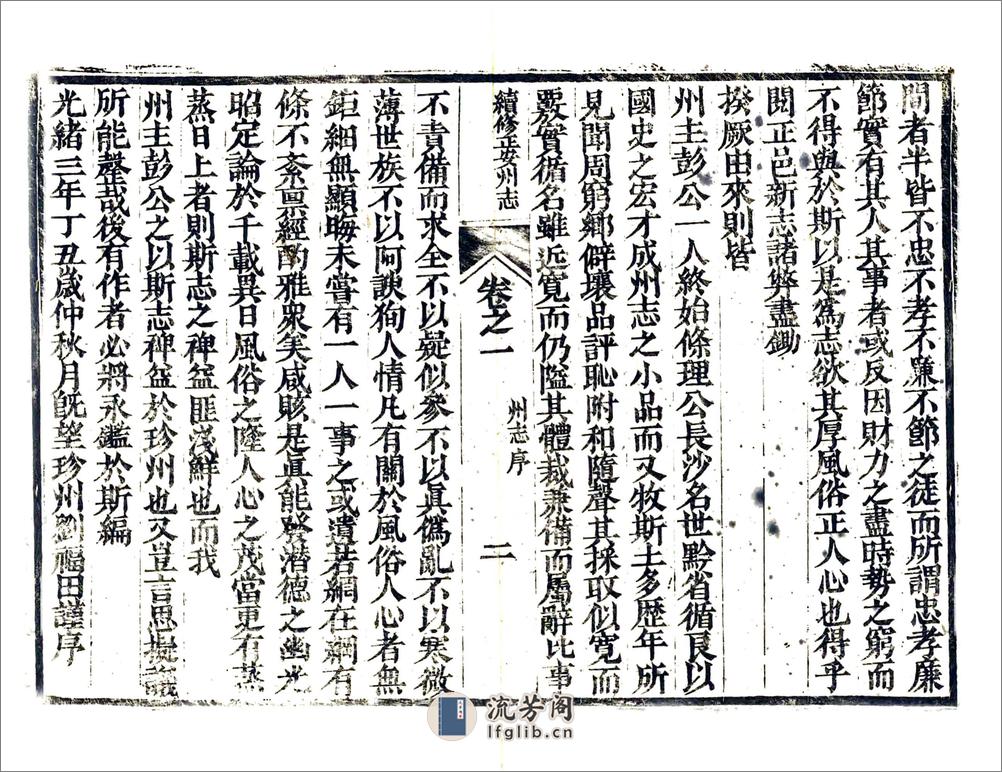 間者半皆不忠不孝不廉不節之徒而所謂忠孝廉
節實有其人其事者或反因財力之盡時勢之窮而
不得與於斯以是爲志欲其厚風俗正人心也得乎
閱正邑新志諸弊盡鋤
揆厥由來則皆
州主彭公一人終始條理公長沙名世黔省循良以
國史之宏才成州志之小品而又牧斯土多歷年所
見聞周窮鄉僻壤品評恥附和隨聲其採取似寬而
覈實循名雖近寬而仍隘其體裁兼備而屬辭比事
續修正安州志
卷之一
州志序
二
不責備而求全不以疑似參不以眞僞亂不以寒微
薄世族不以阿諛狥人情凡有關於風俗人心者無
鉅細無顯晦未嘗有一人一事之或遺若網在綱有
條不紊禀經酌雅衆美咸賅是眞能發潛德之幽光
昭定論於千載異日風俗之隆人心之茂當更有蒸
蒸日上者則斯志之裨益匪淺鮮也而我
州主彭公之以斯志裨益於珍州也又豈言思擬議
所能罄哉後有作者必將永鑑於斯編
光緒三年丁丑歲仲秋月旣望珍州劉福田謹序
流芳阁
lfglib.cn